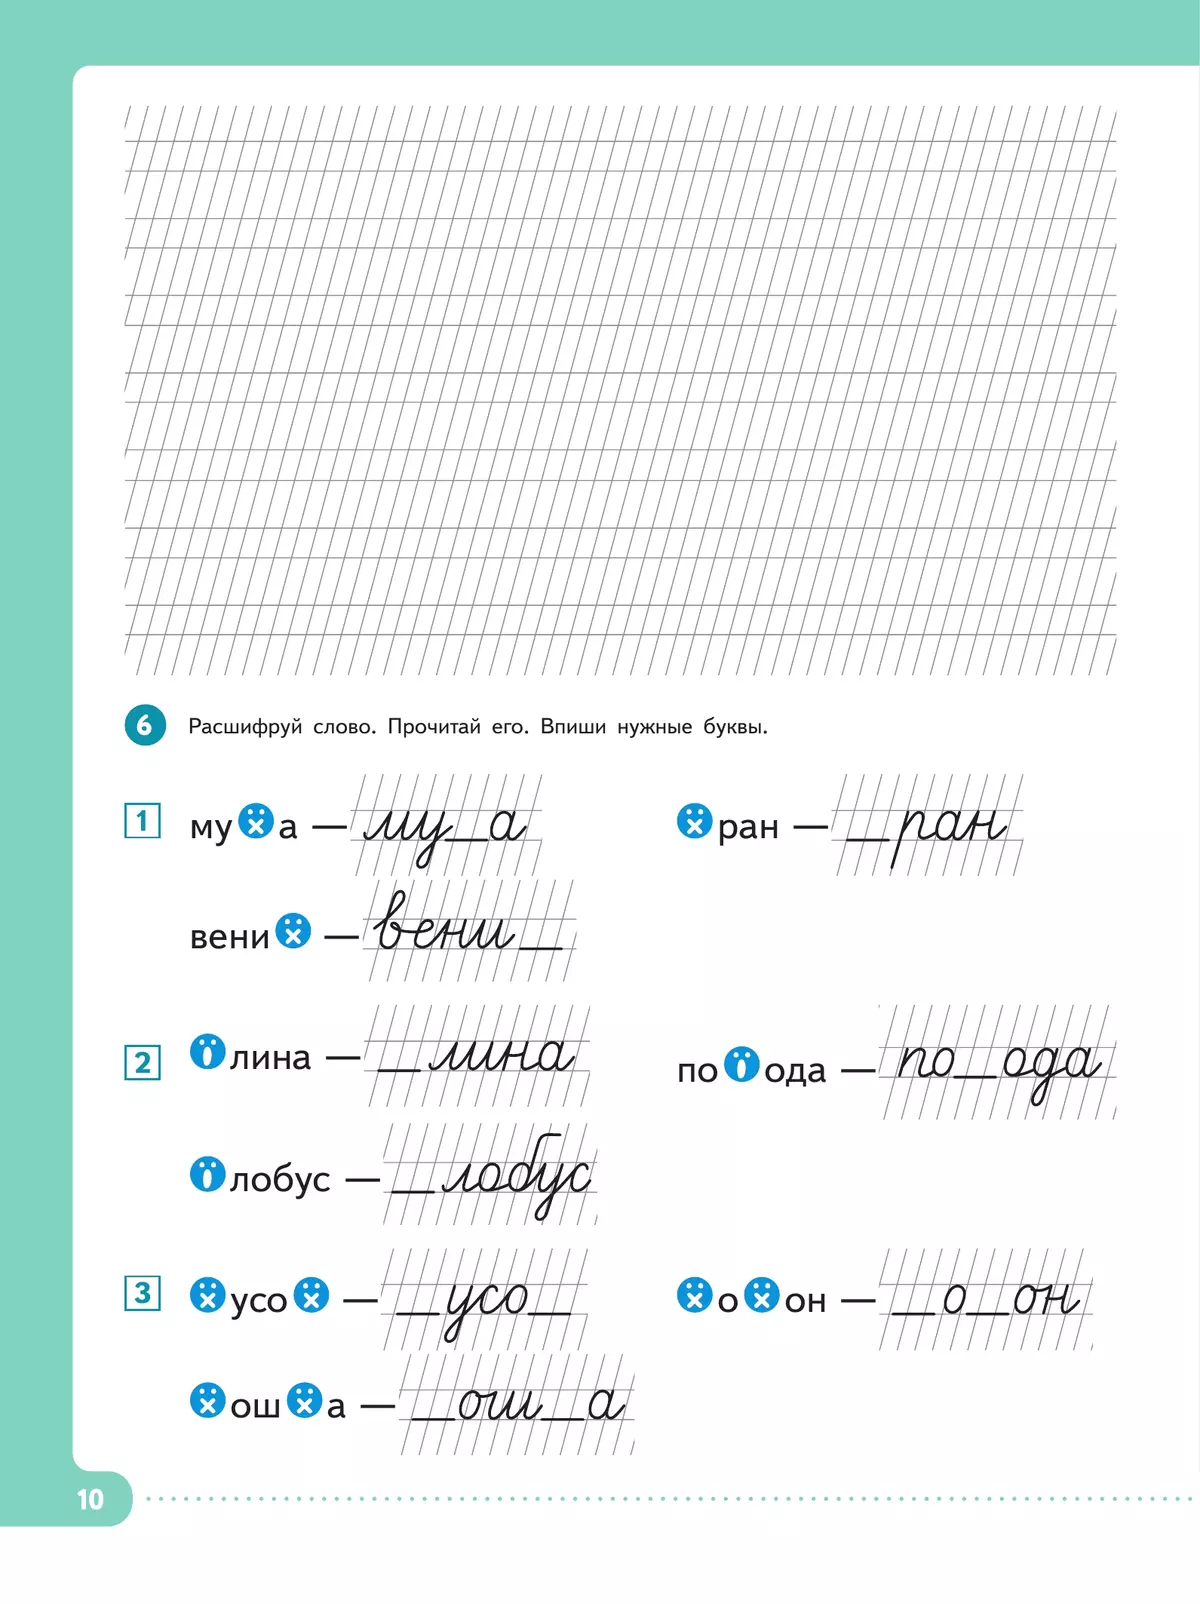 6 Расшифруй слово. Прочитай его. Впиши нужные буквы.
1 му а — му_а ран — _ран
вени — вени_
2 лина — _лина по ода — по_ода
лобус — _лобус
3 усо — _усо_ о он — _о_он
ош а — _ош_а
10